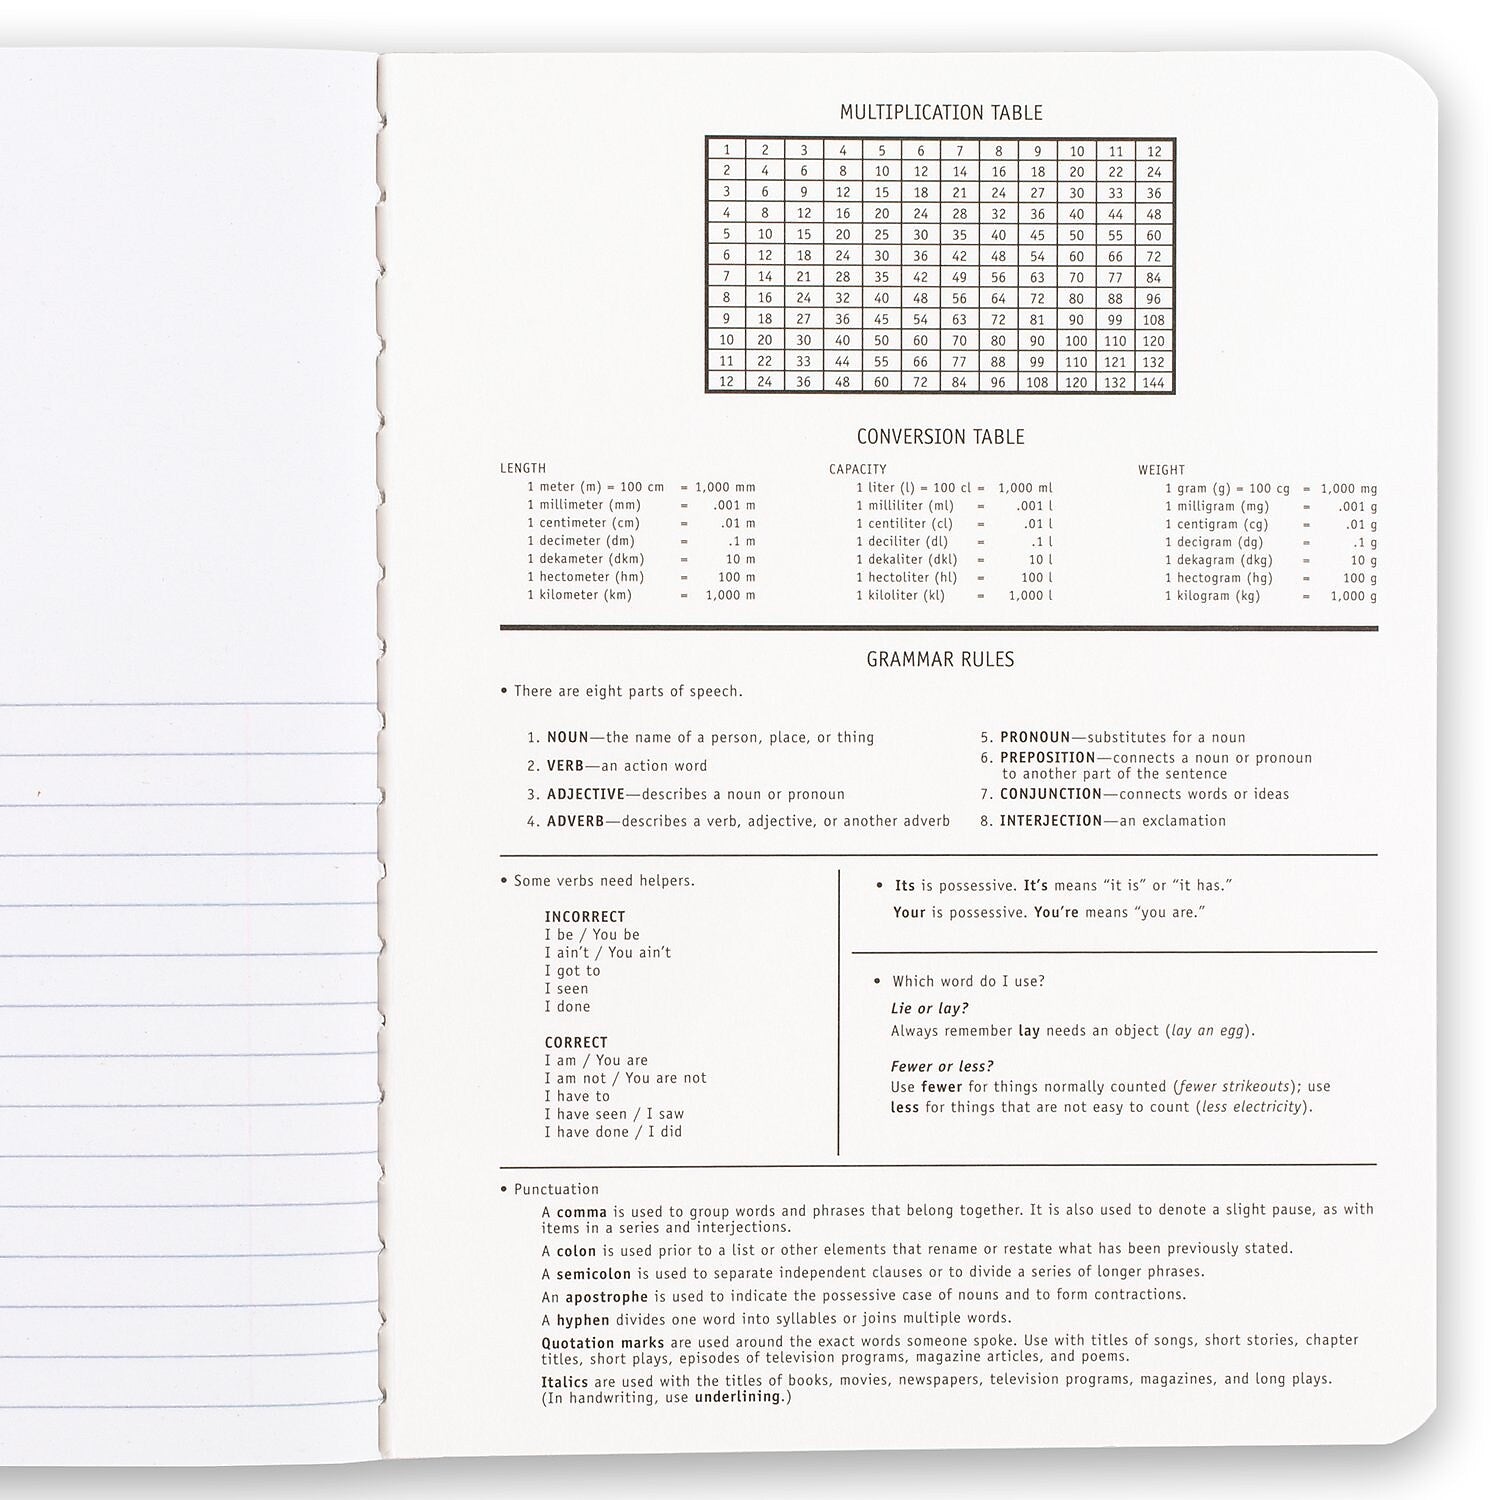 MULTIPLICATION TABLE
1 2 3 4 5 6 7 8 9 10 11 12
2 4 6 8 10 12 14 16 18 20 22 24
3 6 9 12 15 18 21 24 27 30 33 36
4 8 12 16 20 24 28 32 36 40 44 48
5 10 15 20 25 30 35 40 45 50 55 60
6 12 18 24 30 36 42 48 54 60 66 72
7 14 21 28 35 42 49 56 63 70 77 84
8 16 24 32 40 48 56 64 72 80 88 96
9 18 27 36 45 54 63 72 81 90 99 108
10 20 30 40 50 60 70 80 90 100 110 120
11 22 33 44 55 66 77 88 99 110 121 132
12 24 36 48 60 72 84 96 108 120 132 144
CONVERSION TABLE
LENGTH
1 meter (m) = 100 cm = 1,000 mm
1 millimeter (mm) = .001 m
1 centimeter (cm) = .01 m
1 decimeter (dm) = .1 m
1 dekameter (dkm) = 10 m
1 hectometer (hm) = 100 m
1 kilometer (km) = 1,000 m
CAPACITY
1 liter (l) = 100 cl = 1,000 ml
1 milliliter (ml) = .001 l
1 centiliter (cl) = .01 l
1 deciliter (dl) = .1 l
1 dekaliter (dkl) = 10 l
1 hectoliter (hl) = 100 l
1 kiloliter (kl) = 1,000 l
WEIGHT
1 gram (g) = 100 cg = 1,000 mg
1 milligram (mg) = .001 g
1 centigram (cg) = .01 g
1 decigram (dg) = .1 g
1 dekagram (dkg) = 10 g
1 hectogram (hg) = 100 g
1 kilogram (kg) = 1,000 g
GRAMMAR RULES
• There are eight parts of speech.
1. NOUN—the name of a person, place, or thing
2. VERB—an action word
3. ADJECTIVE—describes a noun or pronoun
4. ADVERB—describes a verb, adjective, or another adverb
5. PRONOUN—substitutes for a noun
6. PREPOSITION—connects a noun or pronoun
to another part of the sentence
7. CONJUNCTION—connects words or ideas
8. INTERJECTION—an exclamation
• Some verbs need helpers.
INCORRECT
I be / You be
I ain't / You ain't
I got to
I seen
I done
CORRECT
I am / You are
I am not / You are not
I have to
I have seen / I saw
I have done / I did
• Its is possessive. It's means “it is” or “it has.”
Your is possessive. You're means “you are.”
• Which word do I use?
Lie or lay?
Always remember lay needs an object (lay an egg).
Fewer or less?
Use fewer for things normally counted (fewer strikeouts); use
less for things that are not easy to count (less electricity).
• Punctuation
A comma is used to group words and phrases that belong together. It is also used to denote a slight pause, as with
items in a series and interjections.
A colon is used prior to a list or other elements that rename or restate what has been previously stated.
A semicolon is used to separate independent clauses or to divide a series of longer phrases.
An apostrophe is used to indicate the possessive case of nouns and to form contractions.
A hyphen divides one word into syllables or joins multiple words.
Quotation marks are used around the exact words someone spoke. Use with titles of songs, short stories, chapter
titles, short plays, episodes of television programs, magazine articles, and poems.
Italics are used with the titles of books, movies, newspapers, television programs, magazines, and long plays.
(In handwriting, use underlining.)